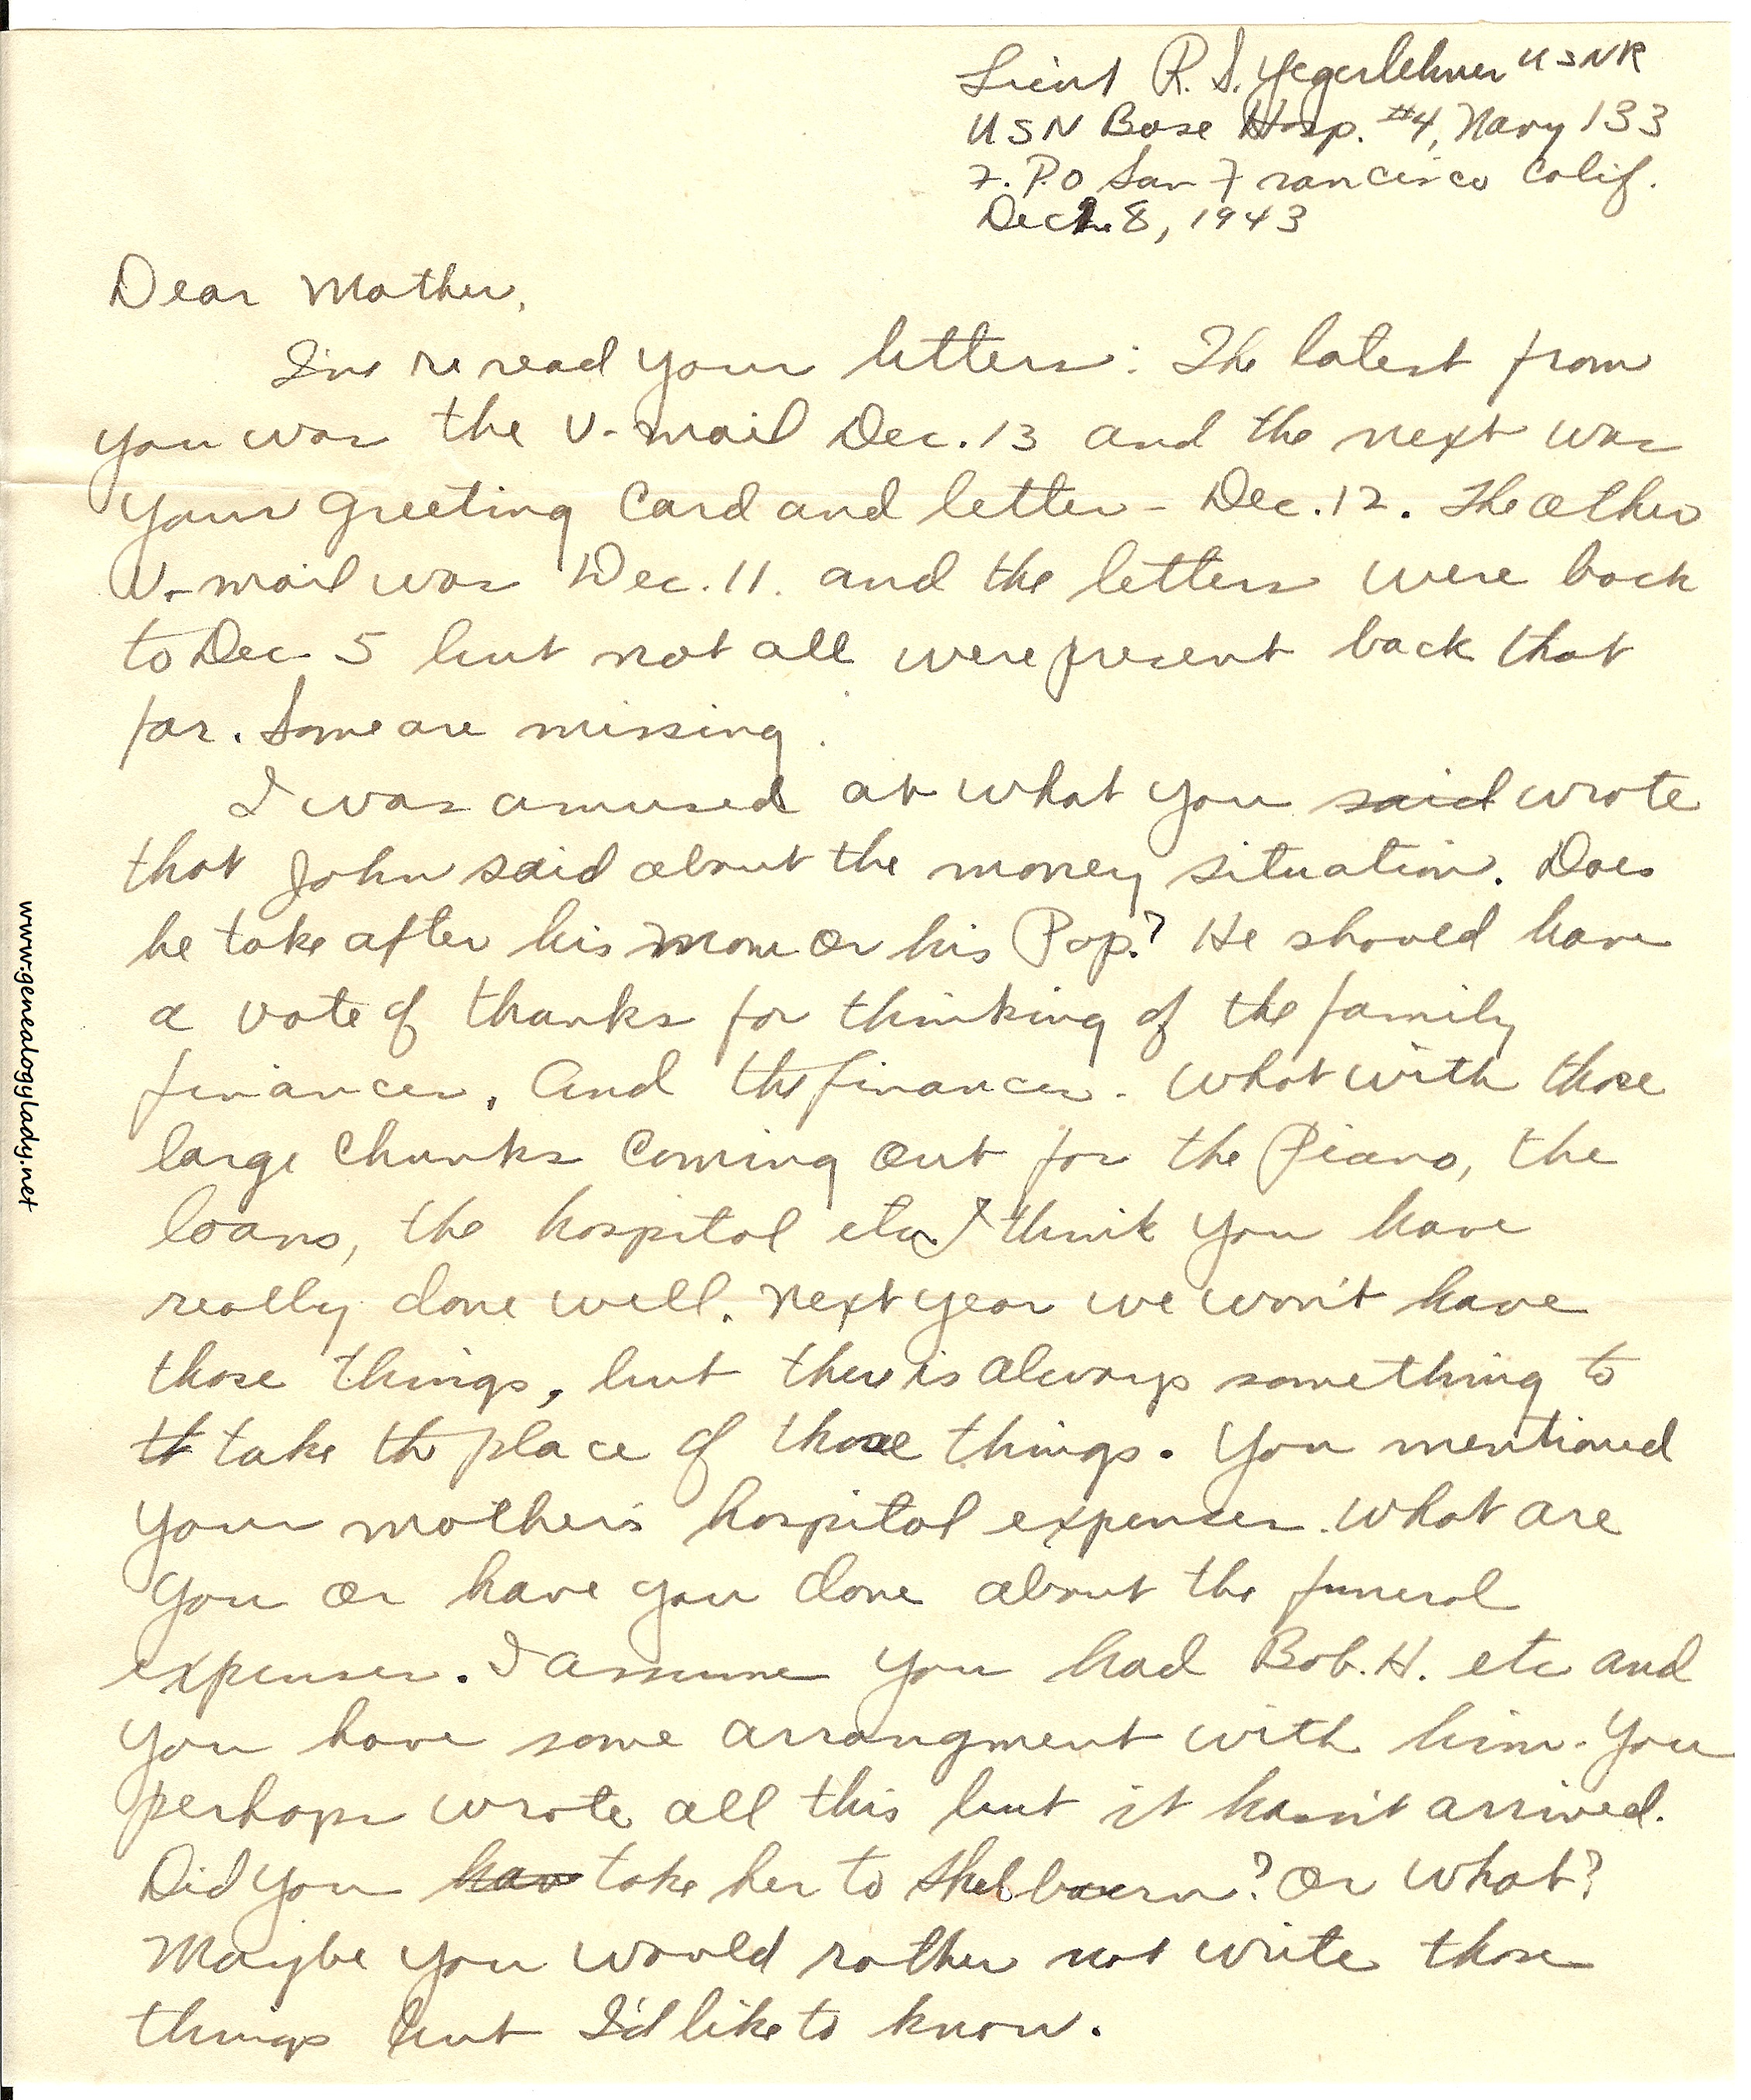 Lieut R. S. Yegerlehner USNR
USN Base Hosp. #4, Navy 133
F.P.O San Francisco Calif.
Dec 28, 1943
Dear Mother,
I've re read your letters: The latest from
you was the V-mail Dec. 13 and the next was
your greeting card and letter - Dec. 12. The other
V-mail was Dec. 11. and the letters were back
to Dec 5 but not all were present back that
far. Some are missing.
I was amused at what you said wrote
that John said about the money situation. Does
he take after his Mom or his Pop? He should have
a vote of thanks for thinking of the family
finances. And the finances. What with those
large chunks coming out for the Piano, the
loans, the hospital etc I think you have
really done well. Next year we won't have
those things, but there is always something to
th take the place of those things. You mentioned
your mother's hospital expenses. What are
you or have you done about the funeral
expenses. I assume you had Bob. H. etc and
you have some arrangment with him. You
perhaps wrote all this but it hasn't arrived.
Did you hav take her to Shelburn? Or what?
Maybe you would rather not write those
things but I'd like to know.
www.genealogylady.net